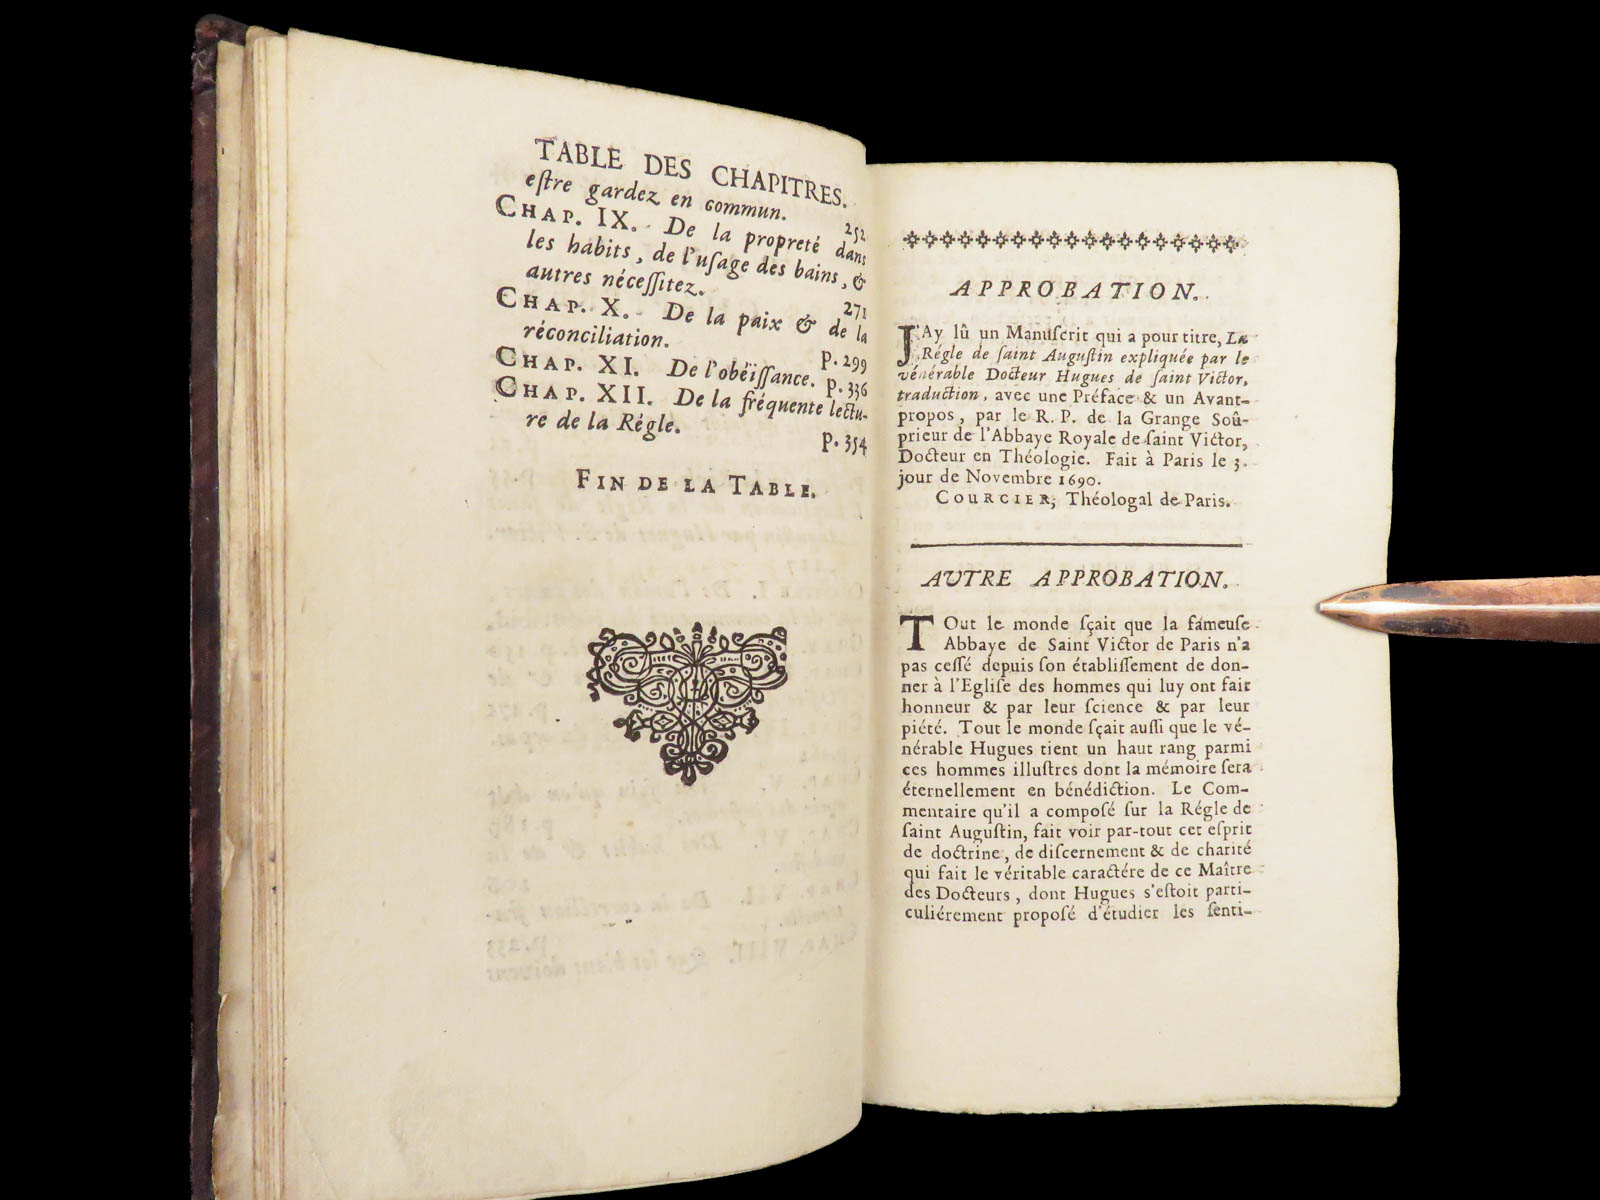 TABLE DES CHAPITRES.
eſtre gardez en commun. 252
CHAP. IX. De la propreté dans
les habits, de l'uſage des bains, &
autres néceſſitez. 271
CHAP. X. De la paix & de la
réconciliation. p. 299
CHAP. XI. De l'obëiſſance. p. 336
CHAP. XII. De la fréquente lectu-
re de la Régle. p. 354
FIN DE LA TABLE.
APPROBATION.
J'Ay lû un Manuſcrit qui a pour titre, La
Régle de ſaint Auguſtin expliquée par le
vénérable Docteur Hugues de ſaint Victor,
traduction, avec une Préface & un Avant-
propos, par le R. P. de la Grange Soû-
prieur de l'Abbaye Royale de ſaint Victor,
Docteur en Théologie. Fait à Paris le 3.
jour de Novembre 1690.
COURCIER, Théologal de Paris.
AVTRE APPROBATION.
TOut le monde ſçait que la fameuſe
Abbaye de Saint Victor de Paris n'a
pas ceſſé depuis ſon établiſſement de don-
ner à l'Egliſe des hommes qui luy ont fait
honneur & par leur ſcience & par leur
piété. Tout le monde ſçait auſſi que le vé-
nérable Hugues tient un haut rang parmi
ces hommes illuſtres dont la mémoire ſera
éternellement en bénédiction. Le Com-
mentaire qu'il a compoſé ſur la Régle de
ſaint Auguſtin, fait voir par-tout cet eſprit
de doctrine, de diſcernement & de charité
qui fait le véritable caractére de ce Maître
des Docteurs, dont Hugues s'eſtoit parti-
culiérement propoſé d'étudier les ſenti-